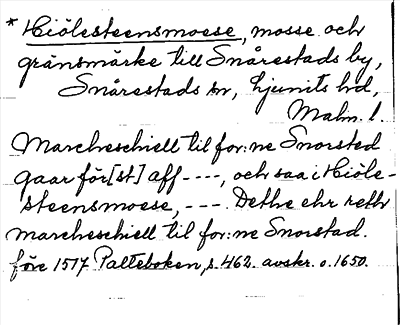 * Hiölesteensmoese, mosse och
gränsmärke till Snårestads by,
Snårestads sn, Ljunits hd,
Malm. l.
Marcheschiell til for:ne Snorsted
gaar för[st] aff ----, och saa i Hiöle-
steensmoese, --- Dethe ehr reth
marcheschiell til for:ne Snorstad.
före 1517 Palteboken, s. 462. avskr. o. 1650.